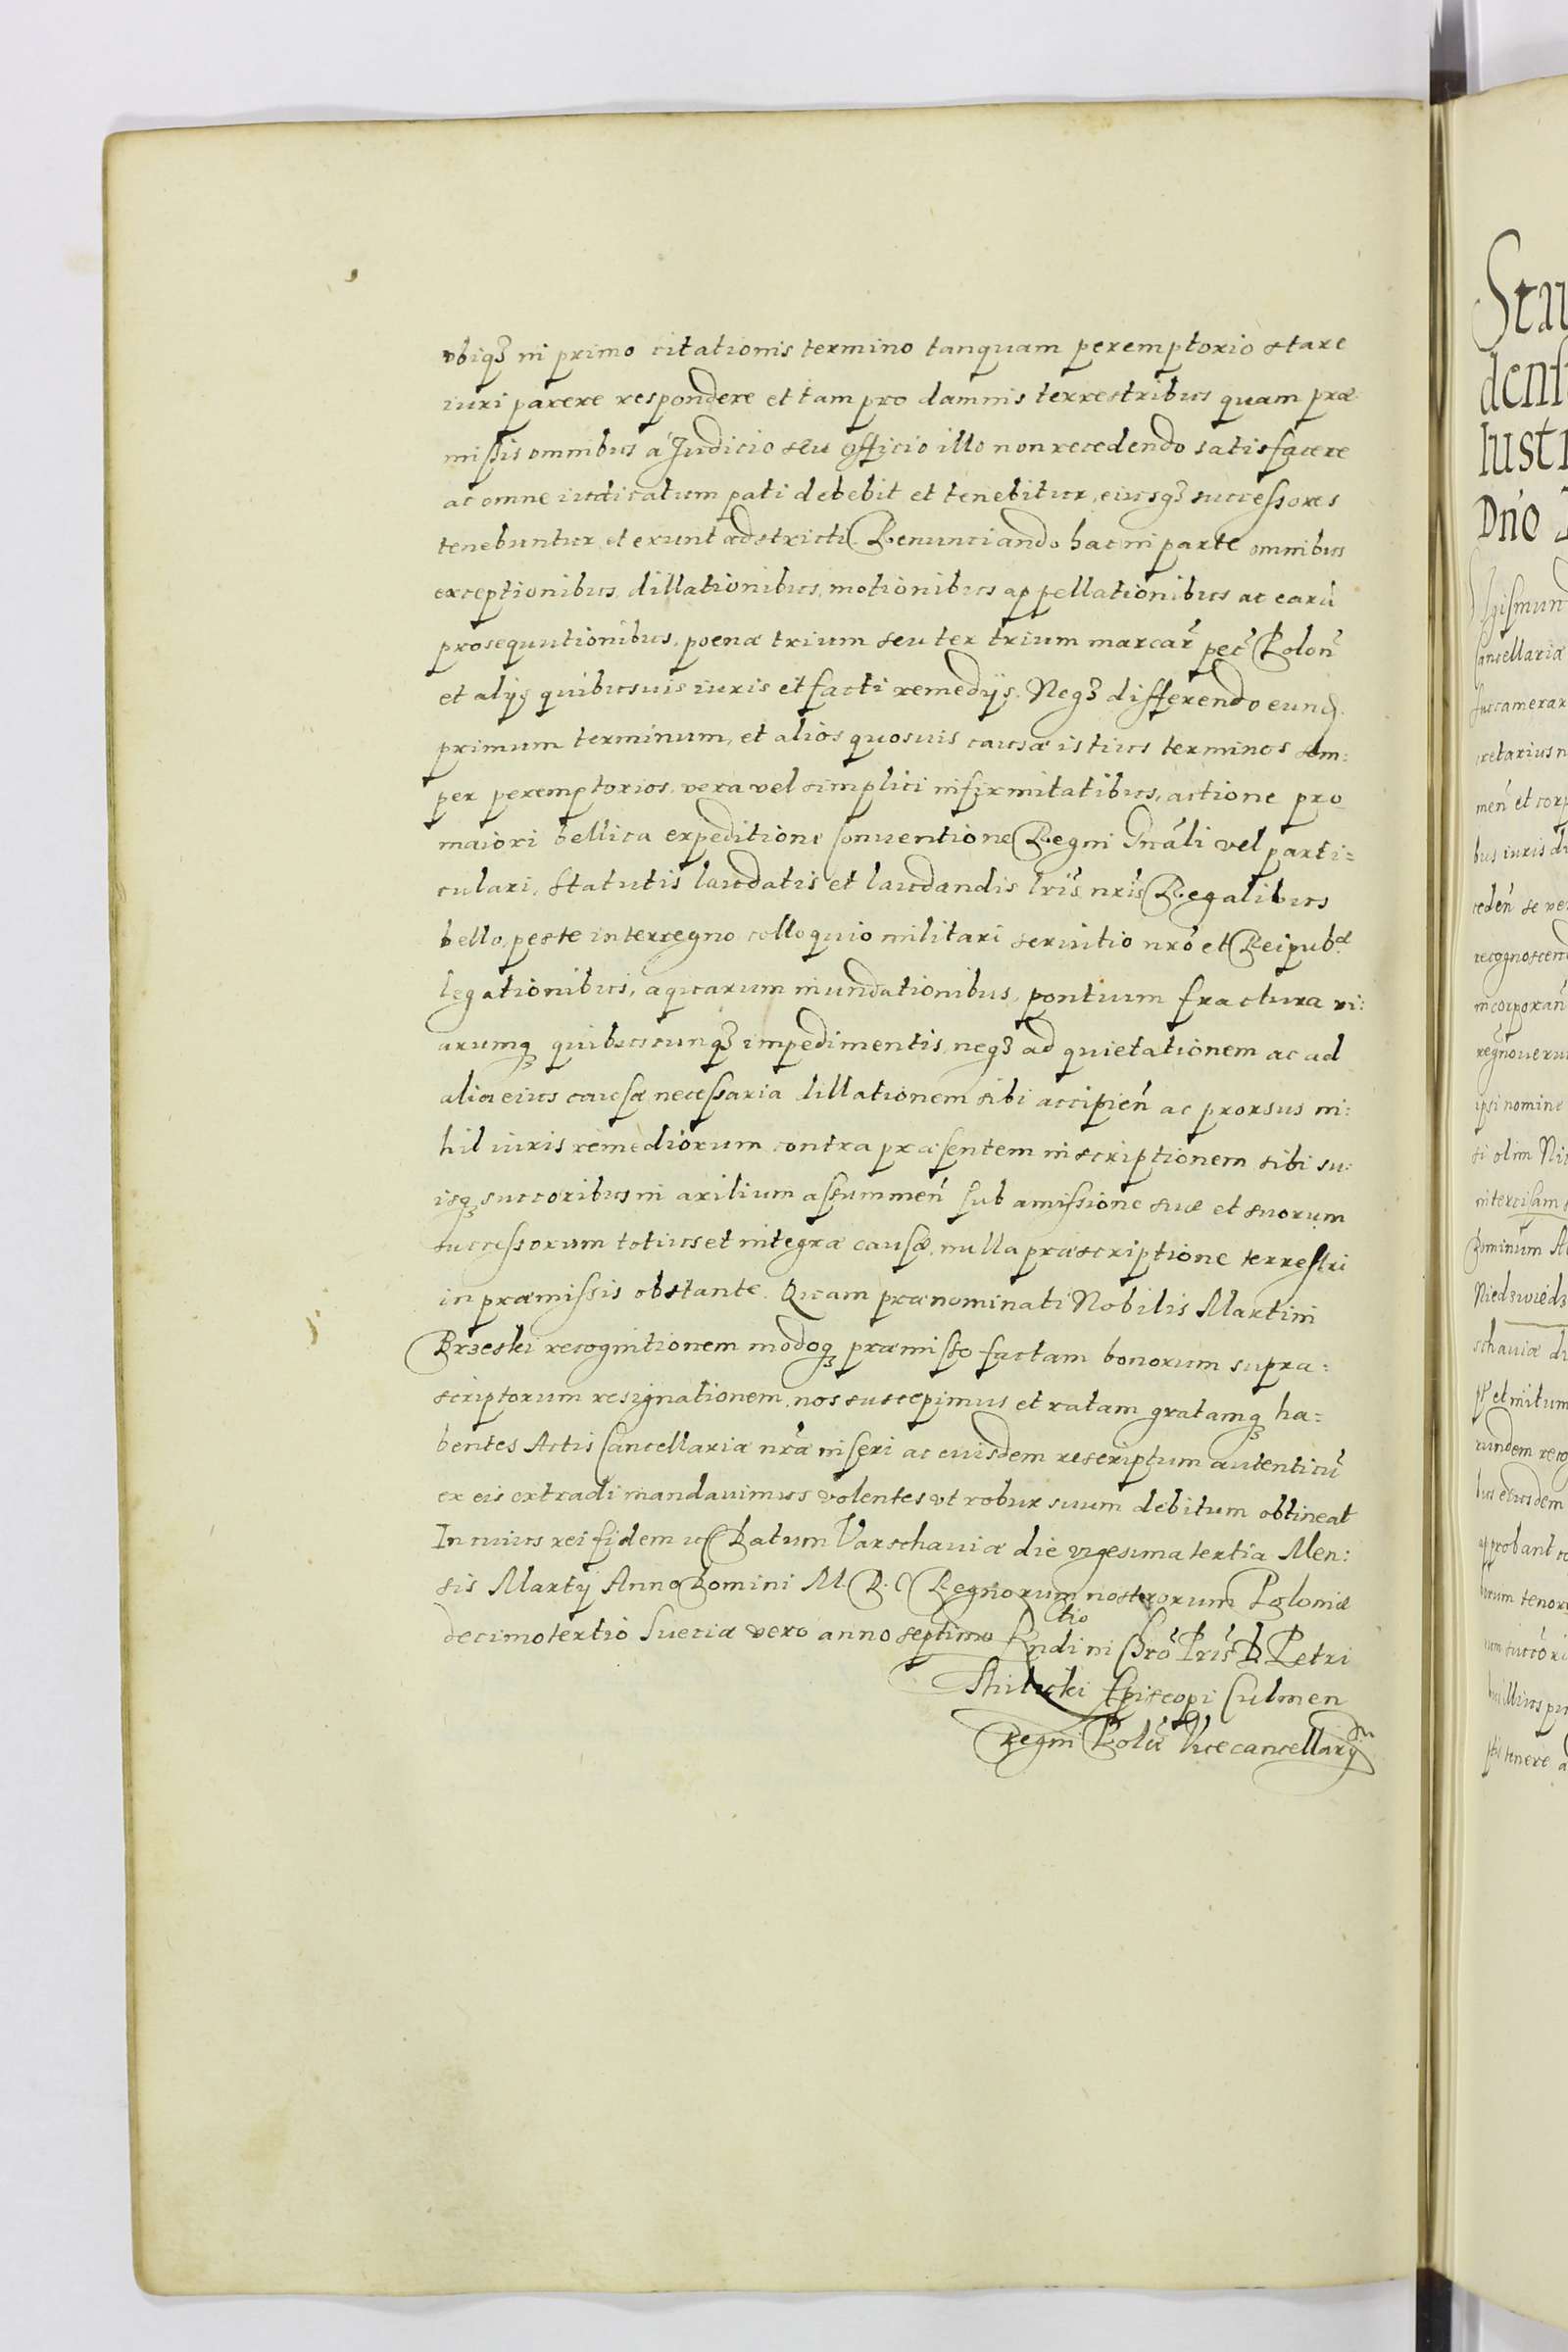 vbiq3 in primo citationis termino tanquam peremptorio stare
iuri parere respondere et tam pro damnis terrestribus quam præ
missis omnibus á Judicio seu officio illo non recedendo satisfacere
ac omne iudicatum pati debebit et tenebitur, eiusq3 successores
tenebuntur et erunt adstricti. Renunciando hac in parte omnibus
exceptionibus, dillationibus, motionibus appellationibus ac earū
prosequutionibus, poenæ trium seu ter trium marcar̃ pec̃ Polon̄
et alijs quibusuis iuris et facti remedijs. Neq3 differendo eund
primum terminum, et alios quosuis causæ istius terminos sem:
per peremptorios, vera vel simplici infirmitatibus, actione pro
maiori bellica expeditione Conuentione Regni Gnāli vel parti=
culari, statutis laudatis et laudandis lris̄ nris̄ Regalibus
bello, peste interregno colloquio militari seruitio nrō et Reipubᵃᵉ
legationibus, aquarum inundationibus, pontium fractura vi:
arumq3 quibuscunq3 impedimentis, neq3 ad quietationem ac ad
alia eius causæ necessaria dillationem sibi accipien̄ ac prorsus ni:
hil iuris remediorum contra præsentem inscriptionem sibi su:
isq3 succoribus in axilium assummen̄ sub amissione suæ et suorum
successorum totius et integræ causæ, nulla præscriptione terrestri
in præmissis obstante. Quam prænominati Nobilis Martini
Brzeski recognitionem modoq3 præmisso factam bonorum supra=
scriptorum resignationem, nos suscepimus et ratam gratamq3 ha=
bentes Actis Cancellariæ nrǣ inseri ac euisdem rescriptum autenticū
ex eis extradi mandauimus volentes vt robur suum debitum obtineat
In cuius rei fidem &c Datum Varschauiæ die vigesima tertia Men:
sis Martij Anno Domini M. D. C Regnorum nostrorum Poloniæ
decimotertio Sueciæ vero anno septimo
Petri
Episcopi Culmen
Regni Vicecancellarij
Stau
denſ
lust
Dn̄o
men̄ et corp
bus iuris di
ceden̄ se ve
recognoscen
incorporan̄
ipsi nomine
si olim Ni
intercisam
Dominum A
Niedzwiedz
schauiæ di
rundem reco
ius eiusdem
approbant